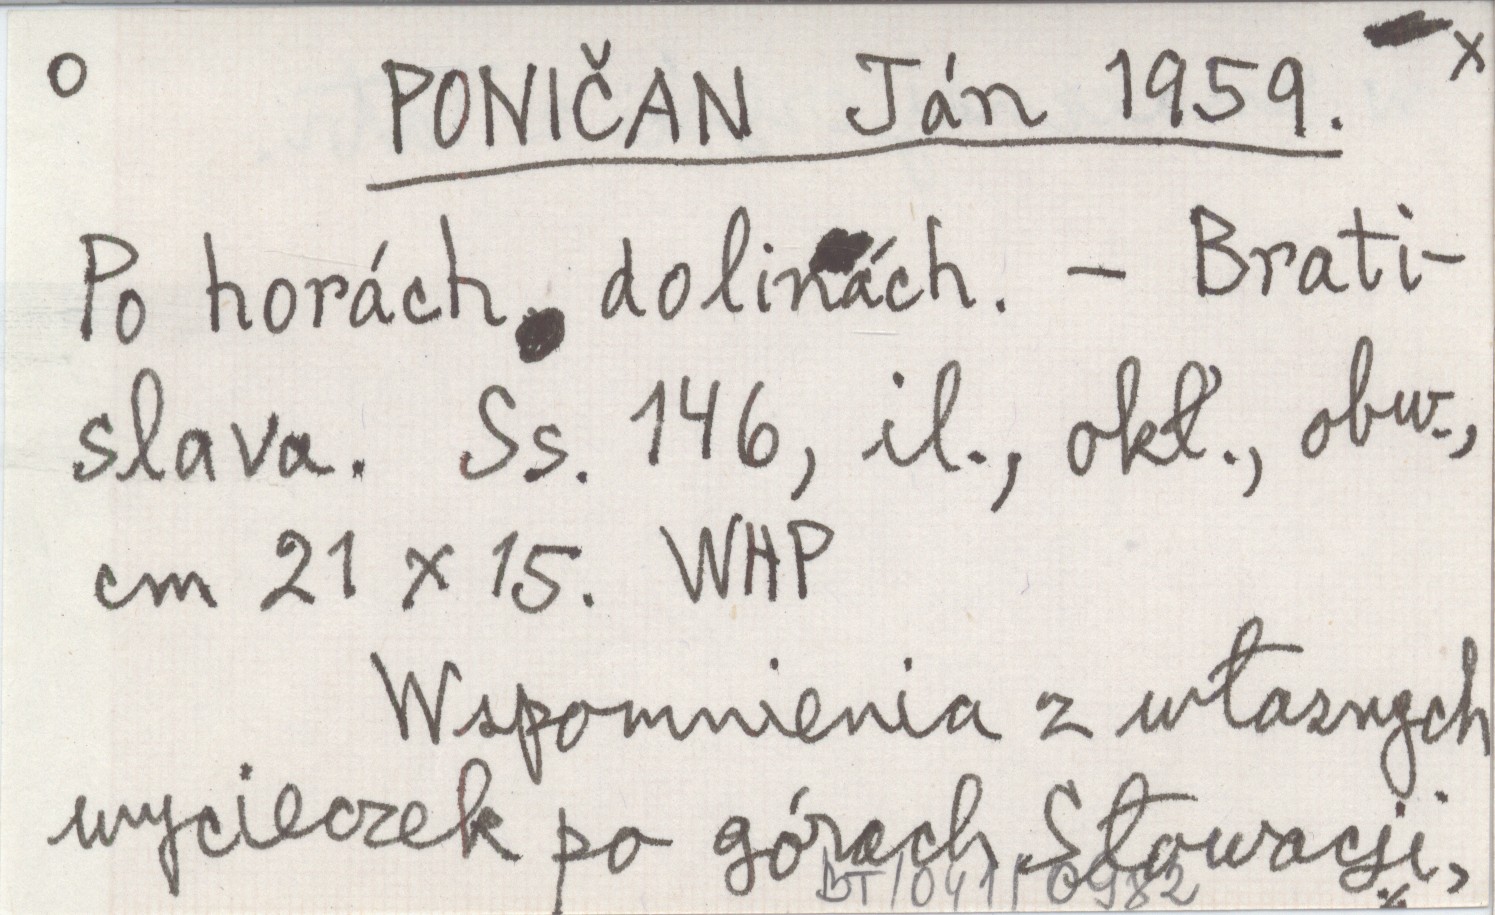 o PONIČAN Ján 1959. x
Po horách dolinách. - Brati-
slava. Ss. 146, il., okł., obw.,
cm 21 x 15. WHP
Wspomnienia z własnych
wycieczek po górach Słowacji,